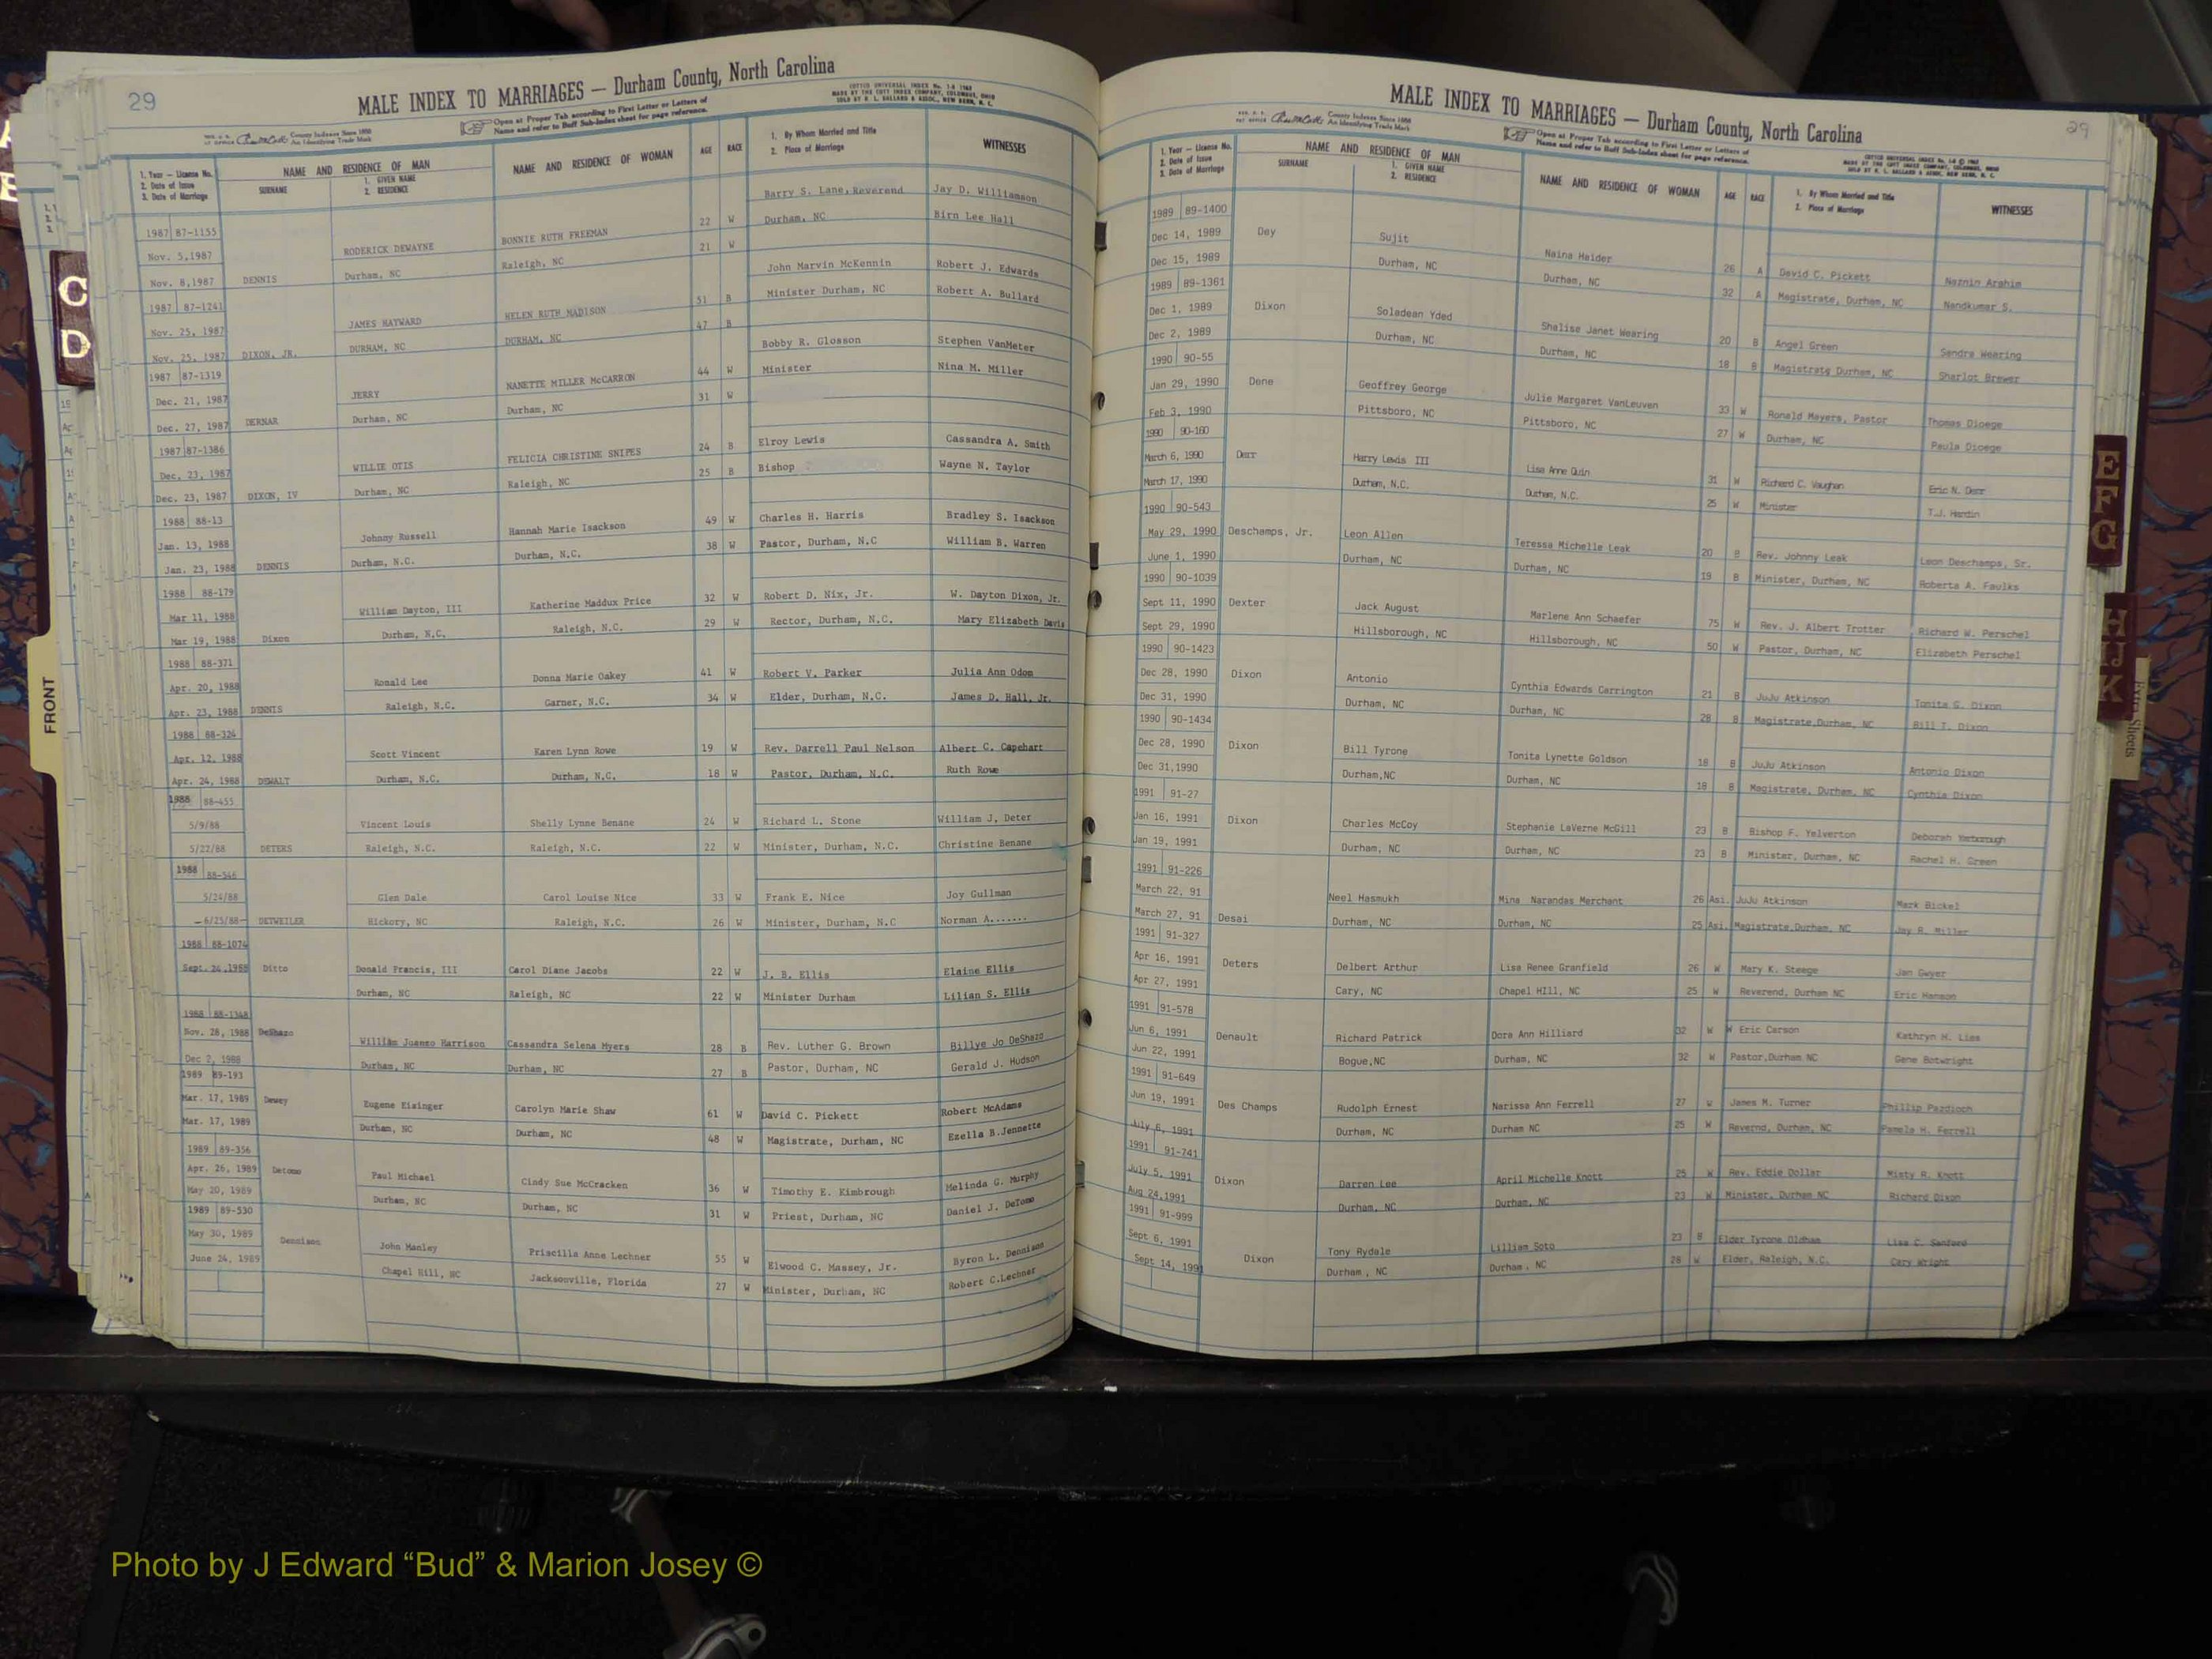 29
MALE INDEX TO MARRIAGES — Durham County, North Carolina
County Indexes Since 1888
An Identifying Trade Mark
Open at Proper Tab according to First Letter or Letters of
Name and refer to Buff Sub-Index sheet for page reference.
COTTCO UNIVERSAL INDEX
MADE BY THE COTT INDEX COMPANY, COLUMBUS, OHIO
1. Year — License No.
2. Date of Issue
3. Date of Marriage
NAME AND RESIDENCE OF MAN
SURNAME
1. GIVEN NAME
2. RESIDENCE
NAME AND RESIDENCE OF WOMAN
AGE
RACE
1. By Whom Married and Title
2. Place of Marriage
WITNESSES
1987 87-1155 RODERICK DEWAYNE BONNIE RUTH FREEMAN 22 W Barry S. Lane, Reverend Jay D. Williamson
Nov. 5, 1987 Durham, NC Raleigh, NC 21 W Durham, NC Birn Lee Hall
Nov. 8, 1987 DENNIS
1987 87-1241 JAMES HAYWARD HELEN RUTH MADISON 51 B John Marvin McKennin Robert J. Edwards
Nov. 25, 1987 DURHAM, NC DURHAM, NC 47 B Minister Durham, NC Robert A. Bullard
Nov. 25, 1987 DIXON, JR.
1987 87-1319 JERRY NANETTE MILLER McCARRON 44 W Bobby R. Glosson Stephen VanMeter
Dec. 21, 1987 Durham, NC Durham, NC 31 W Minister Nina M. Miller
Dec. 27, 1987 DERMAR
1987 87-1386 WILLIE OTIS FELICIA CHRISTINE SNIPES 24 B Elroy Lewis Cassandra A. Smith
Dec. 23, 1987 Durham, NC Raleigh, NC 25 B Bishop Wayne N. Taylor
Dec. 23, 1987 DIXON, IV
1988 88-13 Johnny Russell Hannah Marie Isackson 49 W Charles H. Harris Bradley S. Isackson
Jan. 13, 1988 Durham, N.C. Durham, N.C. 38 W Pastor, Durham, N.C William B. Warren
Jan. 23, 1988 DENNIS
1988 88-179 William Dayton, III Katherine Maddux Price 32 W Robert D. Nix, Jr. W. Dayton Dixon, Jr.
Mar 11, 1988 Durham, N.C. Raleigh, N.C. 29 W Rector, Durham, N.C. Mary Elizabeth Davis
Mar 19, 1988 Dixon
1988 88-371 Ronald Lee Donna Marie Oakey 41 W Robert V. Parker Julia Ann Odom
Apr. 20, 1988 Raleigh, N.C. Garner, N.C. 34 W Elder, Durham, N.C. James D. Hall, Jr.
Apr. 23, 1988 DENNIS
1988 88-324 Scott Vincent Karen Lynn Rowe 19 W Rev. Darrell Paul Nelson Albert C. Capehart
Apr. 12, 1988 Durham, N.C. Durham, N.C. 18 W Pastor, Durham, N.C. Ruth Rowe
Apr. 24, 1988 DEWALT
1988 88-455
5/9/88 Vincent Louis Shelly Lynne Benane 24 W Richard L. Stone William J. Deter
5/22/88 DETERS Raleigh, N.C. Raleigh, N.C. 22 W Minister, Durham, N.C. Christine Benane
1988 88-546
5/24/88 Glen Dale Carol Louise Nice 33 W Frank E. Nice Joy Gullman
6/25/88 DETWEILER Hickory, NC Raleigh, N.C. 26 W Minister, Durham, N.C Norman A.......
1988 88-1074
Sept. 24, 1988 Ditto Donald Francis, III Carol Diane Jacobs 22 W J. B. Ellis Elaine Ellis
Durham, NC Raleigh, NC 22 W Minister Durham Lilian S. Ellis
1988 88-1348
Nov. 28, 1988 DeShazo William Juaneo Harrison Cassandra Selena Myers 28 B Rev. Luther G. Brown Billye Jo DeShazo
Dec 2, 1988 Durham, NC Durham, NC 27 B Pastor, Durham, NC Gerald J. Hudson
1989 89-193
Mar. 17, 1989 Dewey Eugene Eisinger Carolyn Marie Shaw 61 W David C. Pickett Robert McAdams
Mar. 17, 1989 Durham, NC Durham, NC 48 W Magistrate, Durham, NC Ezella B.Jennette
1989 89-356
Apr. 26, 1989 Detomo Paul Michael Cindy Sue McCracken 36 W Timothy E. Kimbrough Melinda G. Murphy
May 20, 1989 Durham, NC Durham, NC 31 W Priest, Durham, NC Daniel J. DeTomo
1989 89-530
May 30, 1989 Dennison John Manley Priscilla Anne Lechner 55 W Elwood C. Massey, Jr. Byron L. Dennison
June 24, 1989 Chapel Hill, NC Jacksonville, Florida 27 W Minister, Durham, NC Robert C.Lechner
29
MALE INDEX TO MARRIAGES — Durham County, North Carolina
County Indexes Since 1888
An Identifying Trade Mark
Open at Proper Tab according to First Letter or Letters of
Name and refer to Buff Sub-Index sheet for page reference.
1. Year — License No.
2. Date of Issue
3. Date of Marriage
NAME AND RESIDENCE OF MAN
SURNAME
1. GIVEN NAME
2. RESIDENCE
NAME AND RESIDENCE OF WOMAN
AGE
RACE
1. By Whom Married and Title
2. Place of Marriage
WITNESSES
1989 89-1400
Dec 14, 1989 Dey Sujit Naina Haider 26 A David C. Pickett Naznin Arahim
Dec 15, 1989 Durham, NC Durham, NC 32 A Magistrate, Durham, NC Nandkumar S.
1989 89-1361
Dec 1, 1989 Dixon Soladean Yded Shalise Janet Wearing 20 B Angel Green Sandra Wearing
Dec 2, 1989 Durham, NC Durham, NC 18 B Magistrate Durham, NC Sharlot Brewer
1990 90-55
Jan 29, 1990 Dene Geoffrey George Julie Margaret VanLeuven 33 W Ronald Mayers, Pastor Thomas Dioege
Feb 3, 1990 Pittsboro, NC Pittsboro, NC 27 W Durham, NC Paula Dioege
1990 90-160
March 6, 1990 Derr Harry Lewis III Lisa Anne Quin 31 W Richard C. Vaughan Eric N. Derr
March 17, 1990 Durham, N.C. Durham, N.C. 25 W Minister T.J. Hardin
1990 90-543
May 29, 1990 Deschamps, Jr. Leon Allen Teressa Michelle Leak 20 B Rev. Johnny Leak Leon Deschamps, Sr.
June 1, 1990 Durham, NC Durham, NC 19 B Minister, Durham, NC Roberta A. Faulks
1990 90-1039
Sept 11, 1990 Dexter Jack August Marlene Ann Schaefer 75 W Rev. J. Albert Trotter Richard W. Perschel
Sept 29, 1990 Hillsborough, NC Hillsborough, NC 50 W Pastor, Durham, NC Elizabeth Perschel
1990 90-1423
Dec 28, 1990 Dixon Antonio Cynthia Edwards Carrington 21 B JuJu Atkinson Tonita G. Dixon
Dec 31, 1990 Durham, NC Durham, NC 28 B Magistrate,Durham, NC Bill T. Dixon
1990 90-1434
Dec 28, 1990 Dixon Bill Tyrone Tonita Lynette Goldson 18 B JuJu Atkinson Antonio Dixon
Dec 31,1990 Durham,NC Durham, NC 18 B Magistrate, Durham, NC Cynthia Dixon
1991 91-27
Jan 16, 1991 Dixon Charles McCoy Stephanie LaVerne McGill 23 B Bishop F. Yelverton Deborah Yearborough
Jan 19, 1991 Durham, NC Durham, NC 23 B Minister, Durham, NC Rachel H. Green
1991 91-226
March 22, 91 Neel Hasmukh Mina Narandas Merchant 26 Asi. JuJu Atkinson Mark Bickel
March 27, 91 Desai Durham, NC Durham, NC 25 Asi. Magistrate,Durham, NC Jay R. Miller
1991 91-327
Apr 16, 1991 Deters Delbert Arthur Lisa Renee Granfield 26 W Mary K. Steege Jan Gwyer
Apr 27, 1991 Cary, NC Chapel HIll, NC 25 W Reverend, Durham NC Eric Hanson
1991 91-578
Jun 6, 1991 Denault Richard Patrick Dora Ann Hilliard 32 W W Eric Carson Kathryn H. Lies
Jun 22, 1991 Bogue,NC Durham, NC 32 W Pastor,Durham NC Gene Botwright
1991 91-649
Jun 19, 1991 Des Champs Rudolph Ernest Narissa Ann Ferrell 27 W James M. Turner Phillip Pardioch
July 6, 1991 Durham, NC Durham NC 25 W Revernd, Durham, NC Pamela H. Ferrell
1991 91-741
July 5, 1991 Dixon Darren Lee April Michelle Knott 25 W Rev. Eddie Dollar Misty R. Knott
Aug 24,1991 Durham, NC Durham, NC 23 W Minister, Durham NC Richard Dixon
1991 91-999
Sept 6, 1991 Tony Rydale Lilliam Soto 23 B Elder Tyrone Oldham Lisa C. Sanford
Sept 14, 1991 Dixon Durham , NC Durham , NC 28 W Elder, Raleigh, N.C. Cary Wright
C
D
FRONT
E
F
G
H
IJ
K
Extra Sheets
Photo by J Edward “Bud” & Marion Josey ©